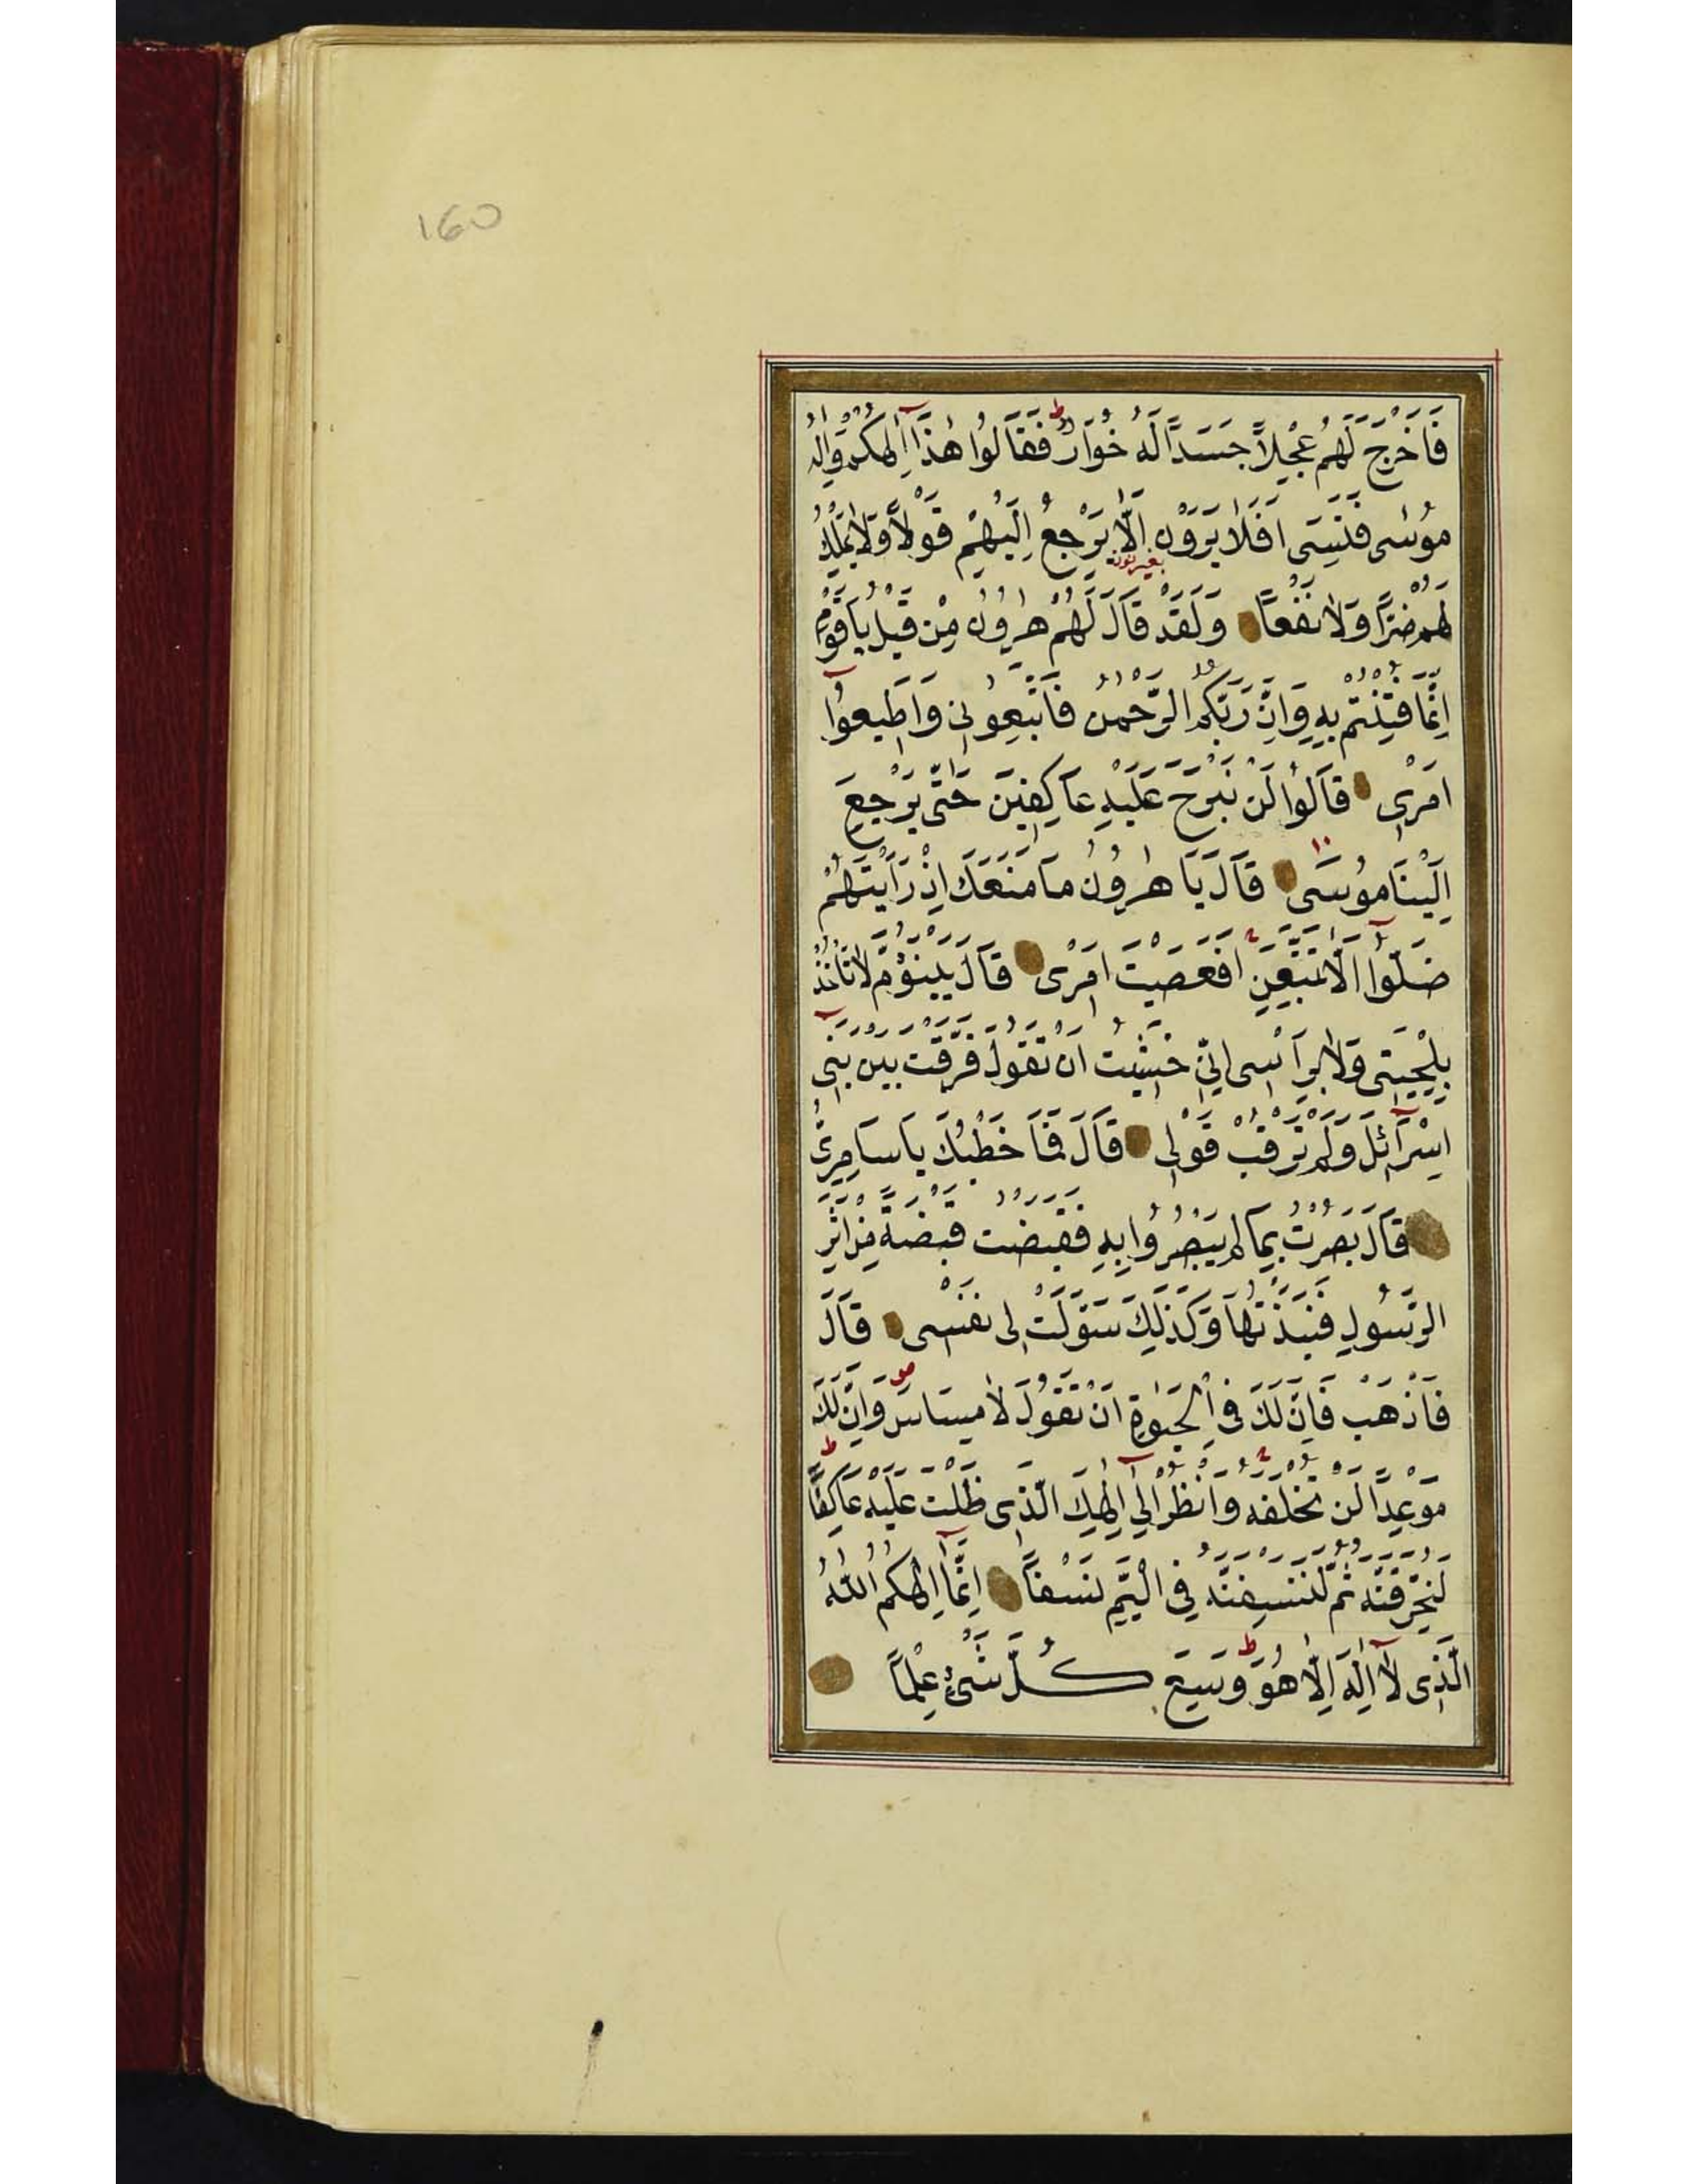 160
فَاَخْرَجَ لَهُمْ عِجْلاً جَسَداً لَهُ خُوَارٌ ط فَقَالُوا هٰذَا اِلٰهُكُمْ وَاِلٰهُ
مُوسٰى فَنَسِىَ اَفَلَا يَرَوْنَ اَلَّا يَرْجِعُ اِلَيْهِمْ قَوْلاً وَلَا يَمْلِكُ
بغير نون
لَهُمْ ضَرّاً وَلَا نَفْعاً وَلَقَدْ قَالَ لَهُمْ هٰرُونُ مِنْ قَبْلُ يَا قَوْمِ
اِنَّمَا فُتِنْتُمْ بِهِ وَاِنَّ رَبَّكُمُ الرَّحْمٰنُ فَاتَّبِعُونِى وَاَطِيعُوا
اَمْرِى قَالُوا لَنْ نَبْرَحَ عَلَيْهِ عَاكِفِينَ حَتَّى يَرْجِعَ
اِلَيْنَا مُوسَى ١٠ قَالَ يَا هٰرُونُ مَا مَنَعَكَ اِذْ رَاَيْتَهُمْ
ضَلُّوا اَلَّا تَتَّبِعَنِ اَفَعَصَيْتَ اَمْرِى قَالَ يَبْنَؤُمَّ لَا تَأْخُذْ
بِلِحْيَتِى وَلَا بِرَأْسِى اِنِّى خَشِيتُ اَنْ تَقُولَ فَرَّقْتَ بَيْنَ بَنِى
اِسْرَآئِلَ وَلَمْ تَرْقُبْ قَوْلِى قَالَ فَمَا خَطْبُكَ يَا سَامِرِىُّ
قَالَ بَصُرْتُ بِمَا لَمْ يَبْصُرُوا بِهِ فَقَبَضْتُ قَبْضَةً مِنْ اَثَرِ
الرَّسُولِ فَنَبَذْتُهَا وَكَذٰلِكَ سَوَّلَتْ لِى نَفْسِى قَالَ
فَاذْهَبْ فَاِنَّ لَكَ فِى الْحَيٰوةِ اَنْ تَقُولَ لَا مِسَاسَ صو وَاِنَّ لَكَ
مَوْعِداً لَنْ تُخْلَفَهُ ج وَانْظُرْ اِلَى اِلٰهِكَ الَّذِى ظَلْتَ عَلَيْهِ عَاكِفاً ط
لَنُحَرِّقَنَّهُ ثُمَّ لَنَنْسِفَنَّهُ فِى الْيَمِّ نَسْفاً اِنَّمَا اِلٰهُكُمُ اللّٰهُ
الَّذِى لَا اِلٰهَ اِلَّا هُوَ ط وَسِعَ كُلَّ شَىْءٍ عِلْماً